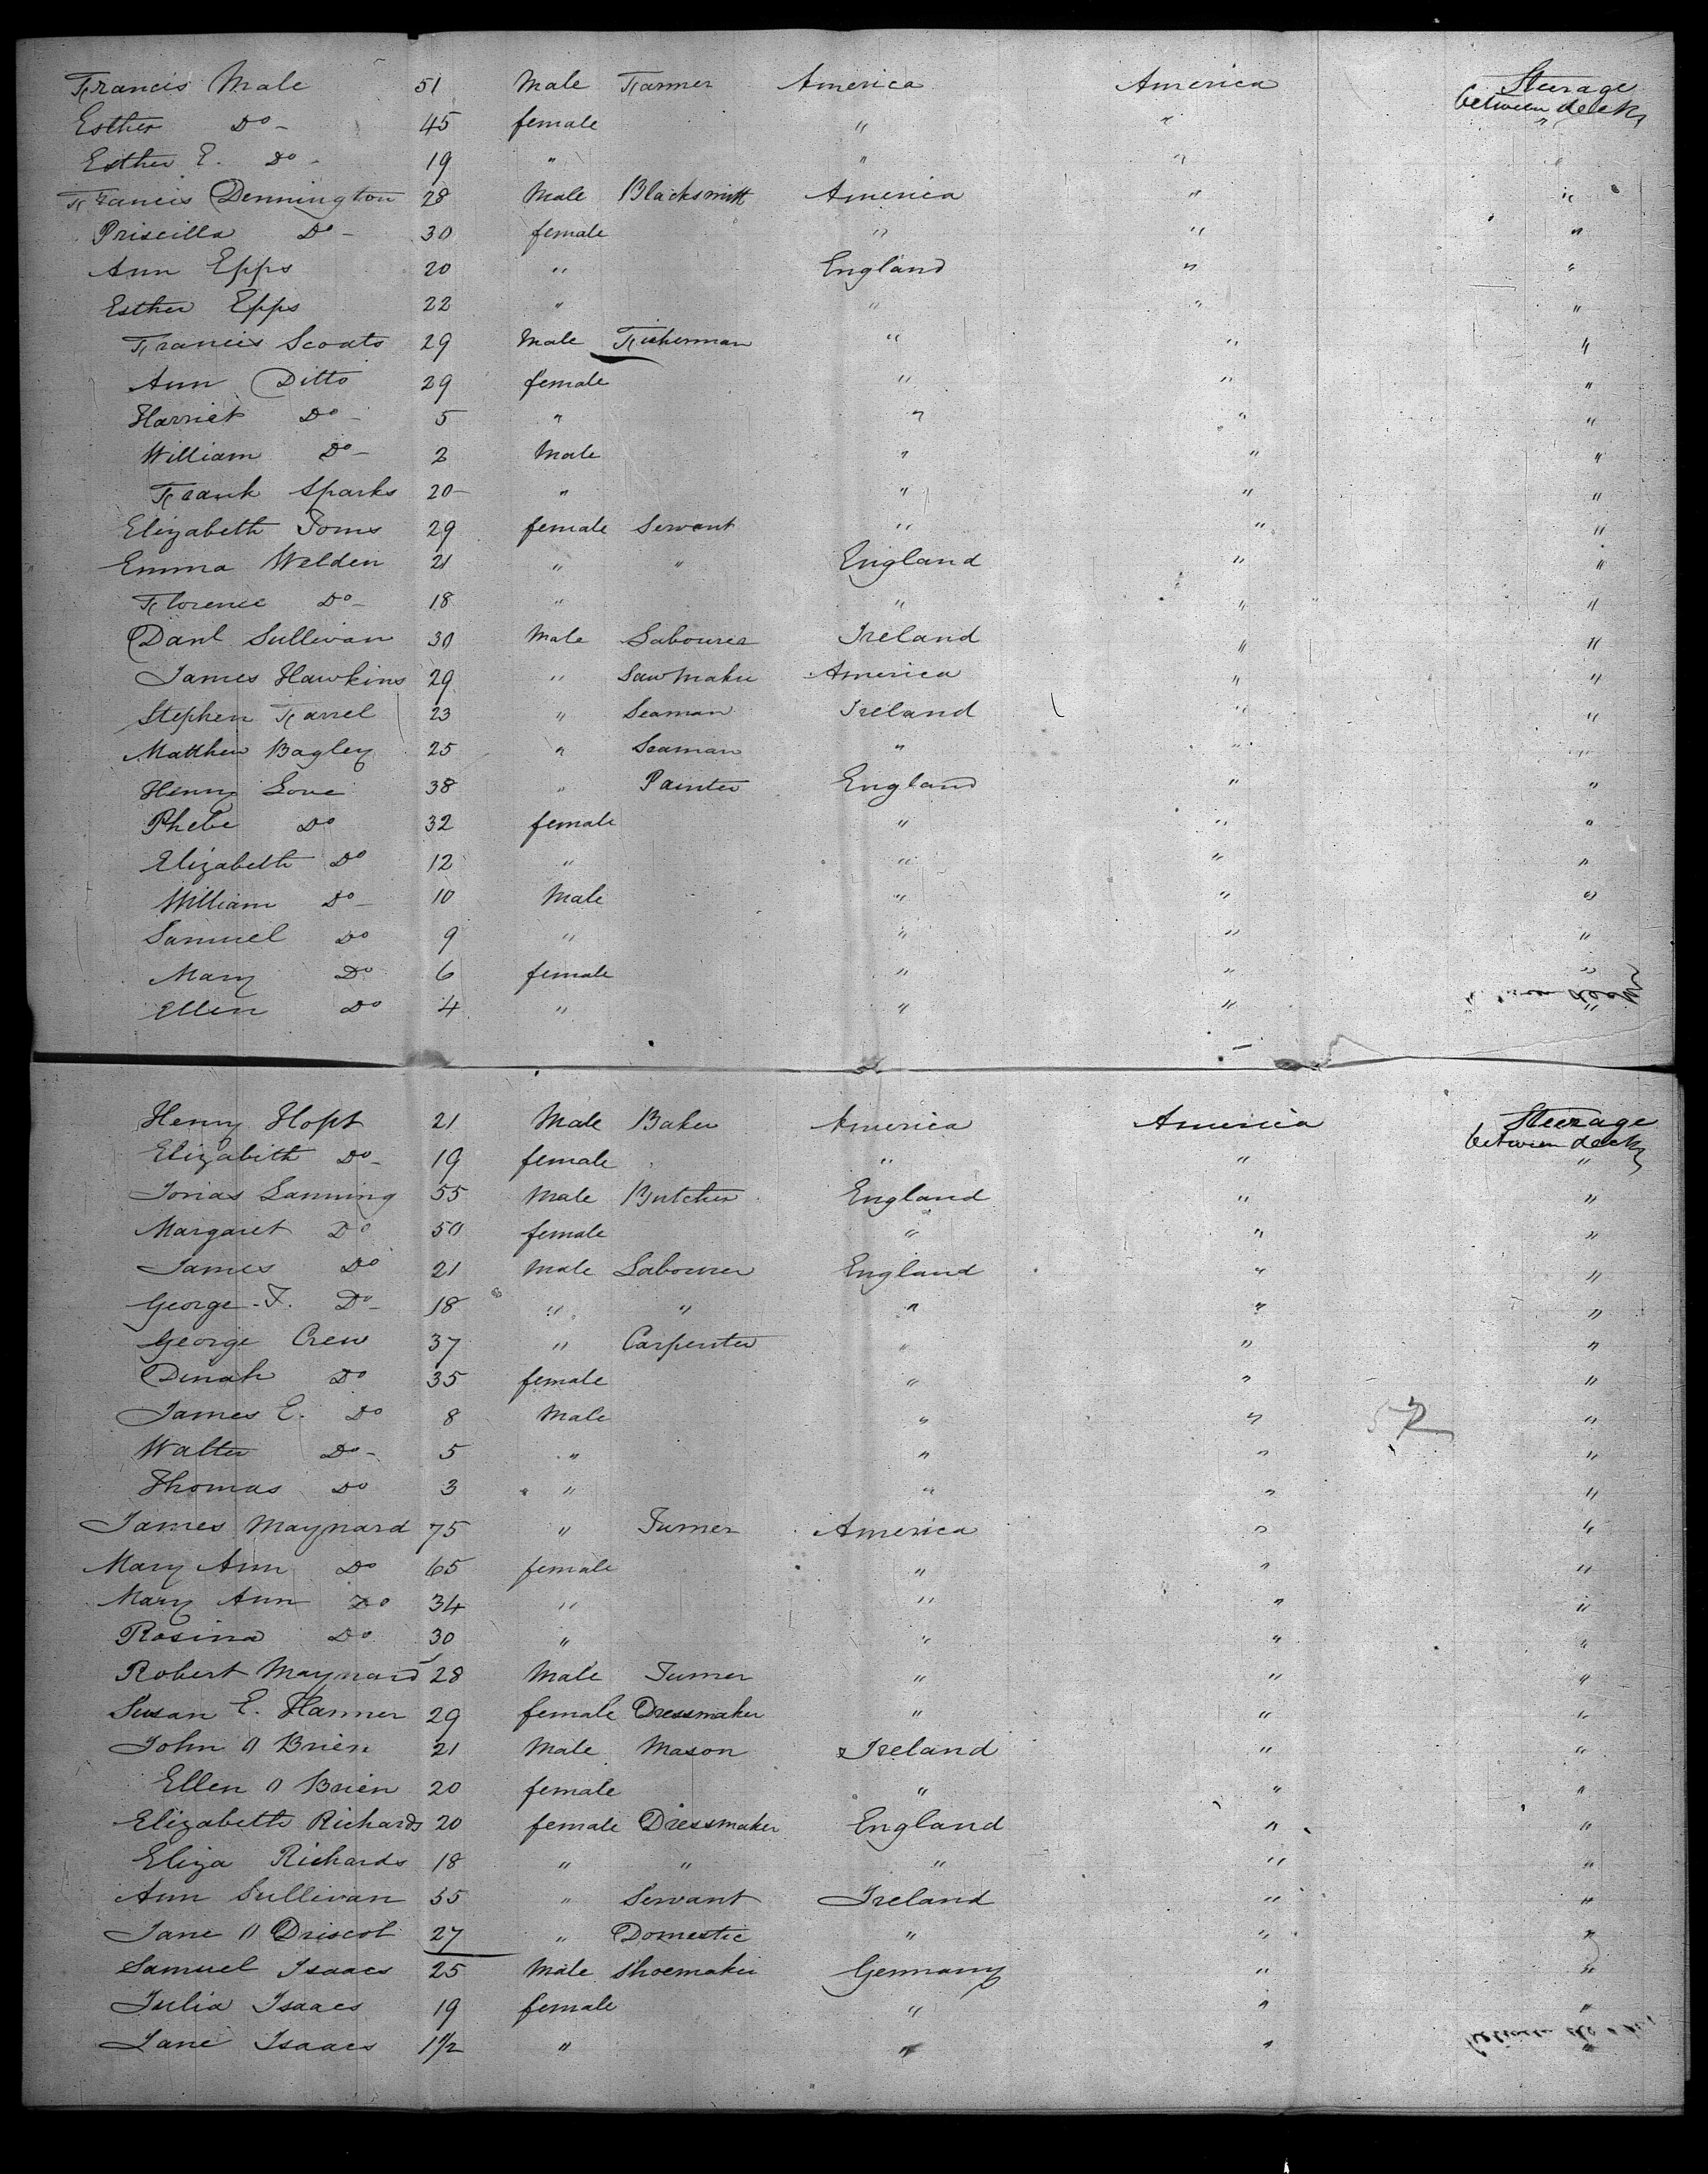 Francis Male 51 Male Farmer America America Steerage
between decks
Esther Do - 45 female " " "
Esther E. Do - 19 " " " "
Francis Dennington 28 Male Blacksmith America " "
Priscilla Do - 30 female " " "
Ann Epps 20 " England " "
Esther Epps 22 " " " "
Francis Scoats 29 Male Fisherman " " "
Ann Ditto 29 female " " "
Harriet Do - 5 " " " "
William Do - 2 Male " " "
Frank Sparks 20 - " " " "
Elizabeth Toms 29 female Servant " " "
Emma Welden 21 " " England " "
Florence Do - 18 " " " "
Danl Sullivan 30 Male Labourer Ireland " "
James Hawkins 29 " Saw Maker America " "
Stephen Farrel 23 " Seaman Ireland " "
Matthew Bagley 25 " Seaman " " "
Henry Love 38 " Painter England " "
Phebe Do 32 female " " "
Elizabeth Do 12 " " " "
William Do - 10 Male " " "
Samuel Do 9 " " " "
Mary Do 6 female " " "
Ellen Do 4 " " " "
Henry Hopt 21 Male Baker America America Steerage
between decks
Elizabith Do - 19 female " " "
Jonas Lanning 55 Male Butcher England " "
Margaret Do 50 female " " "
James Do 21 Male Labourer England " "
George F. Do - 18 " " " " "
George Crew 37 " Carpenter " " "
Dinah Do 35 female " " "
James E. Do 8 Male " " "
52
Walter Do - 5 " " " "
Thomas Do 3 " " " "
James Maynard 75 " Turner America " "
Mary Ann Do 65 female " " "
Mary Ann Do 34 " " " "
Rosina Do 30 " " " "
Robert Maynard 28 Male Turner " " "
Susan E. Hanner 29 female Dressmaker " " "
John O Brien 21 Male Mason Ireland " "
Ellen O Brien 20 female " " "
Elizabeth Richards 20 female Dressmaker England " "
Eliza Richards 18 " " " " "
Ann Sullivan 35 " Servant Ireland " "
Jane O Driscol 27 " Domestic " " "
Samuel Isaacs 25 Male Shoemaker Germany " "
Julia Isaacs 19 female " " "
Jane Isaacs 1 1/2 " " " "